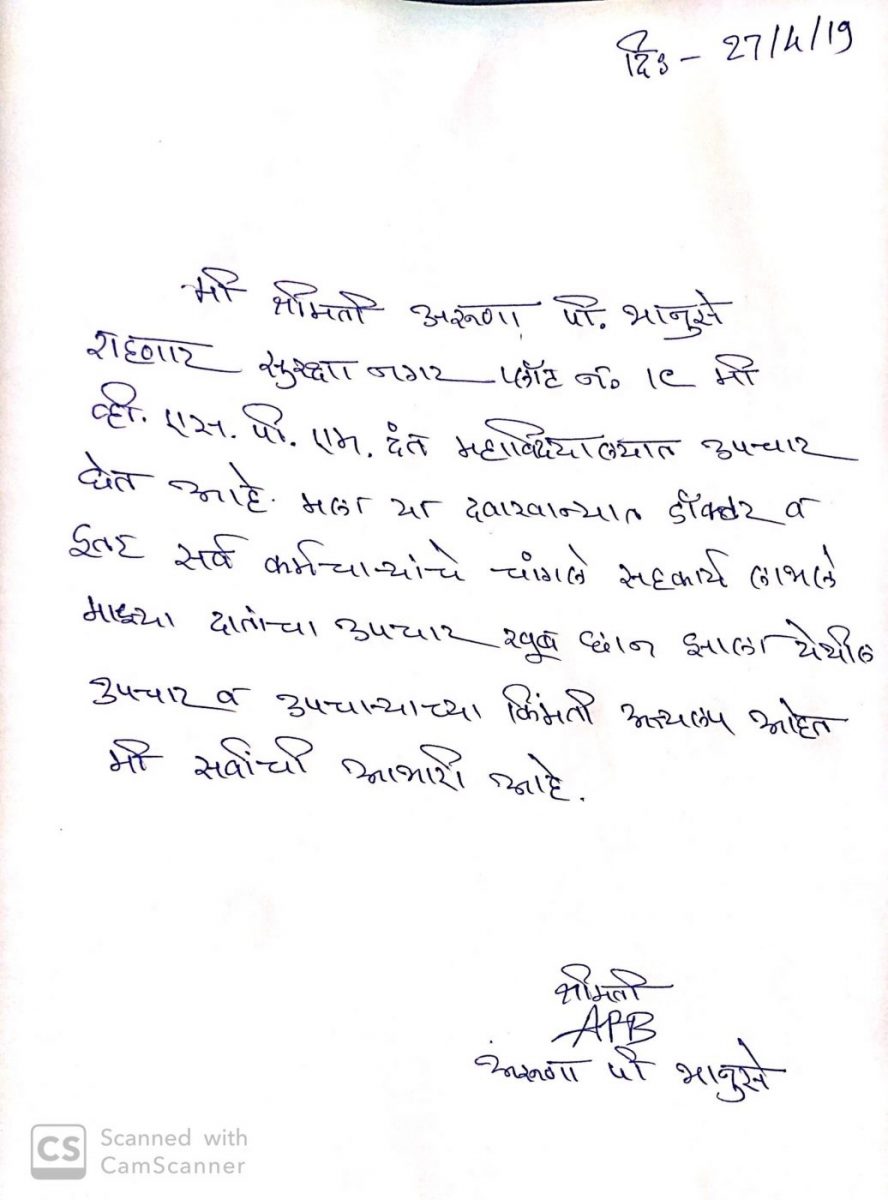 दि० - 27/4/19
मी श्रीमती अरुणा पी. भानुसे
राहणार सुरक्षा नगर प्लॉट नं० १९ मी
व्ही. एस. पी. एम. दंत महाविद्यालयात उपचार
घेत आहे. मला या दवाखान्यात डॉक्टर व
इतर सर्व कर्मचाऱ्यांचे चांगले सहकार्य लाभले
माझ्या दातांचा उपचार खुप छान झाला येथील
उपचार व उपचाऱ्याच्या किंमती अत्यल्प आहेत
मी सर्वांची आभारी आहे.
श्रीमती
APB
अरुणा पी भानुसे
CS Scanned with
CamScanner